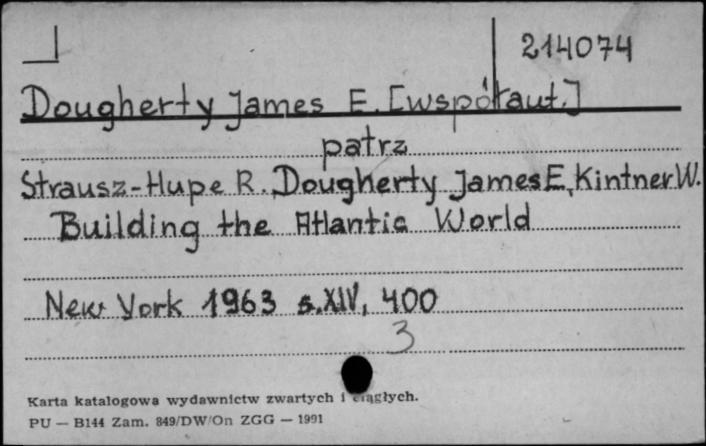 214074
Dougherty James E. [współaut.]
patrz
Strausz-Hupe R. Dougherty James E, Kintner W.
Building the Atlantic World
New York 1963 s. XIV, 400
3
Karta katalogowa wydawnictw zwartych i ciągłych.
PU — B144 Zam. 849/DW/On ZGG — 1991